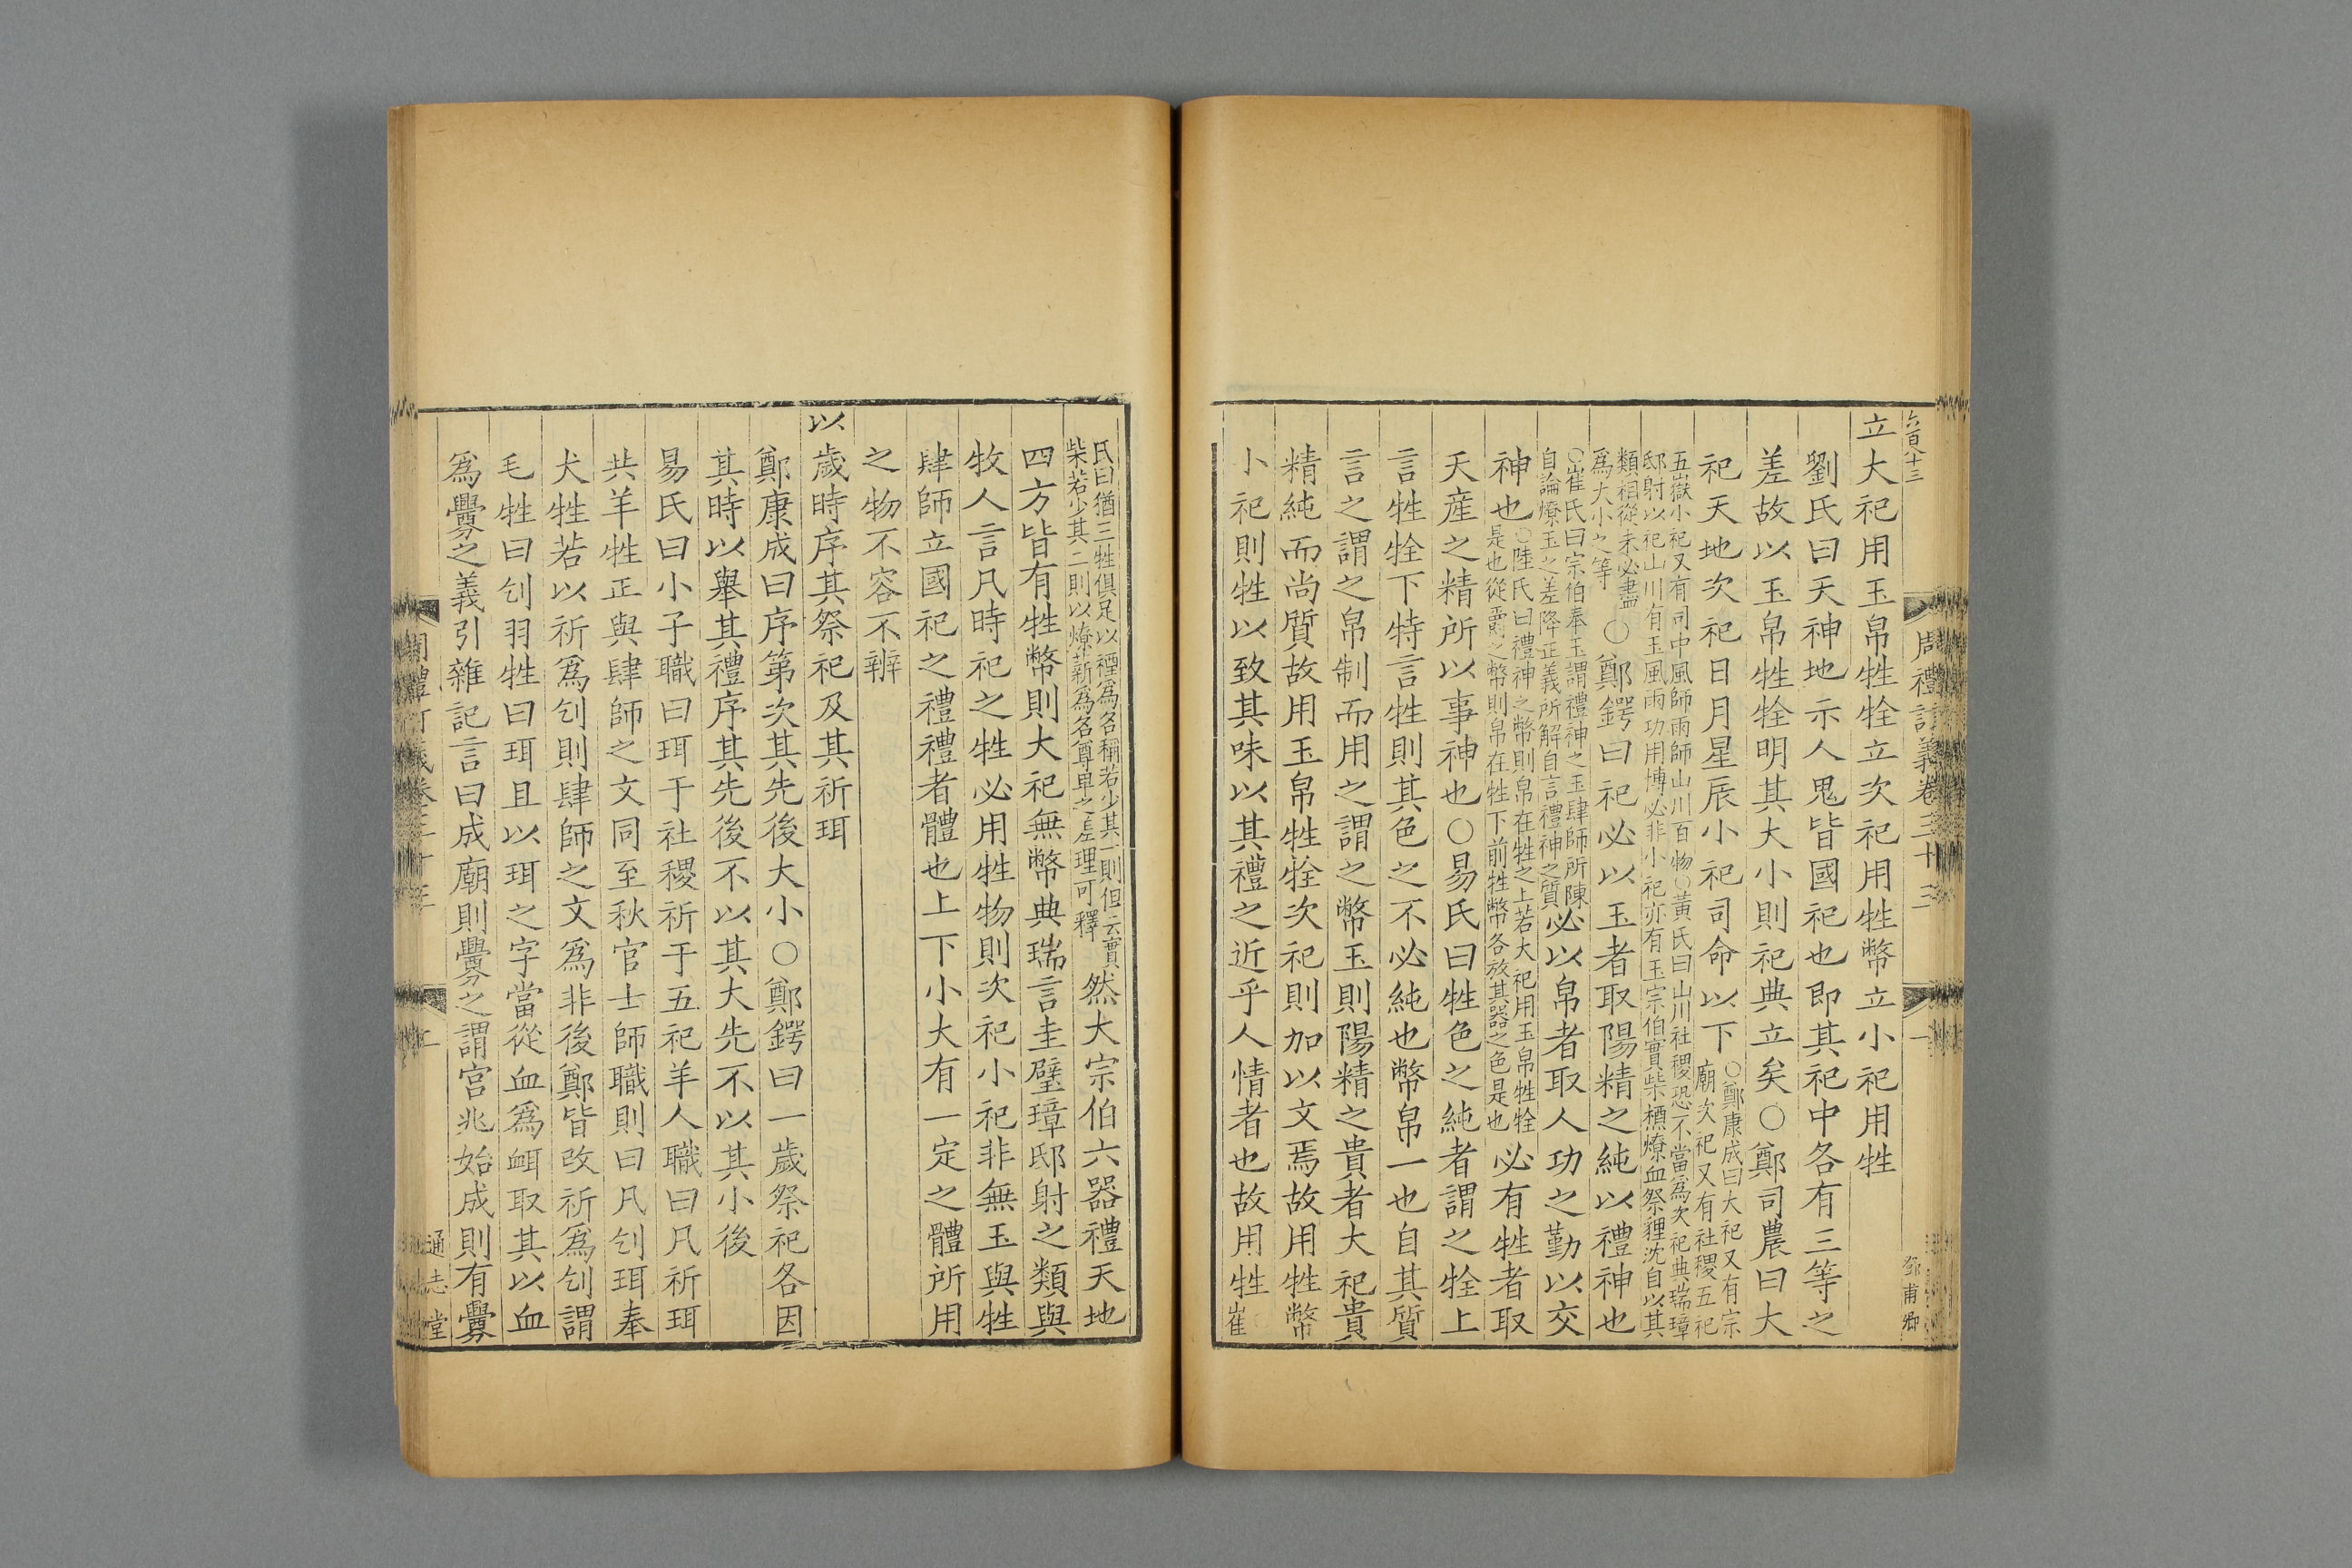 六百八十三
周禮訂義卷三十三
鄧甫卿
立大祀用玉帛牲牷立次祀用牲幣立小祀用牲
劉氏曰天神地示人鬼皆國祀也即其祀中各有三等之
差故以玉帛牲牷明其大小則祀典立矣○鄭司農曰大
祀天地次祀日月星辰小祀司命以下
○鄭康成曰大祀又有宗
廟次祀又有社稷五祀
五嶽小祀又有司中風師雨師山川百物○黃氏曰山川社稷恐不當爲次祀典瑞璋
邸射以祀山川有玉風雨功用博必非小祀亦有玉宗伯實柴槱燎血祭貍沈自以其
類相從未必盡
爲大小之等
○鄭鍔曰祀必以玉者取陽精之純以禮神也
○崔氏曰宗伯奉玉謂禮神之玉肆師所陳
自論燎玉之差降正義所解自言禮神之質
必以帛者取人功之勤以交
神也
○陸氏曰禮神之幣則帛在牲之上若大祀用玉帛牲牷
是也從爵之幣則帛在牲下前牲幣各放其器之色是也
必有牲者取
天産之精所以事神也○易氏曰牲色之純者謂之牷上
言牲牷下特言牲則其色之不必純也幣帛一也自其質
言之謂之帛制而用之謂之幣玉則陽精之貴者大祀貴
精純而尚質故用玉帛牲牷次祀則加以文焉故用牲幣
小祀則牲以致其味以其禮之近乎人情者也故用牲
崔
氏曰猶三牲俱足以禋爲名稱若少其一則但云實
柴若少其二則以燎薪爲名尊卑之差理可釋
然大宗伯六器禮天地
四方皆有牲幣則大祀無幣典瑞言圭璧璋邸射之類與
牧人言凡時祀之牲必用牲物則次祀小祀非無玉與牲
肆師立國祀之禮禮者體也上下小大有一定之體所用
之物不容不辨
以歲時序其祭祀及其祈珥
鄭康成曰序第次其先後大小○鄭鍔曰一歲祭祀各因
其時以舉其禮序其先後不以其大先不以其小後
易氏曰小子職曰珥于社稷祈于五祀羊人職曰凡祈珥
共羊牲正與肆師之文同至秋官士師職則曰凡刉珥奉
犬牲若以祈爲刉則肆師之文爲非後鄭皆改祈爲刉謂
毛牲曰刉羽牲曰珥且以珥之字當從血爲衈取其以血
爲釁之義引雜記言曰成廟則釁之謂宮兆始成則有釁
通志堂